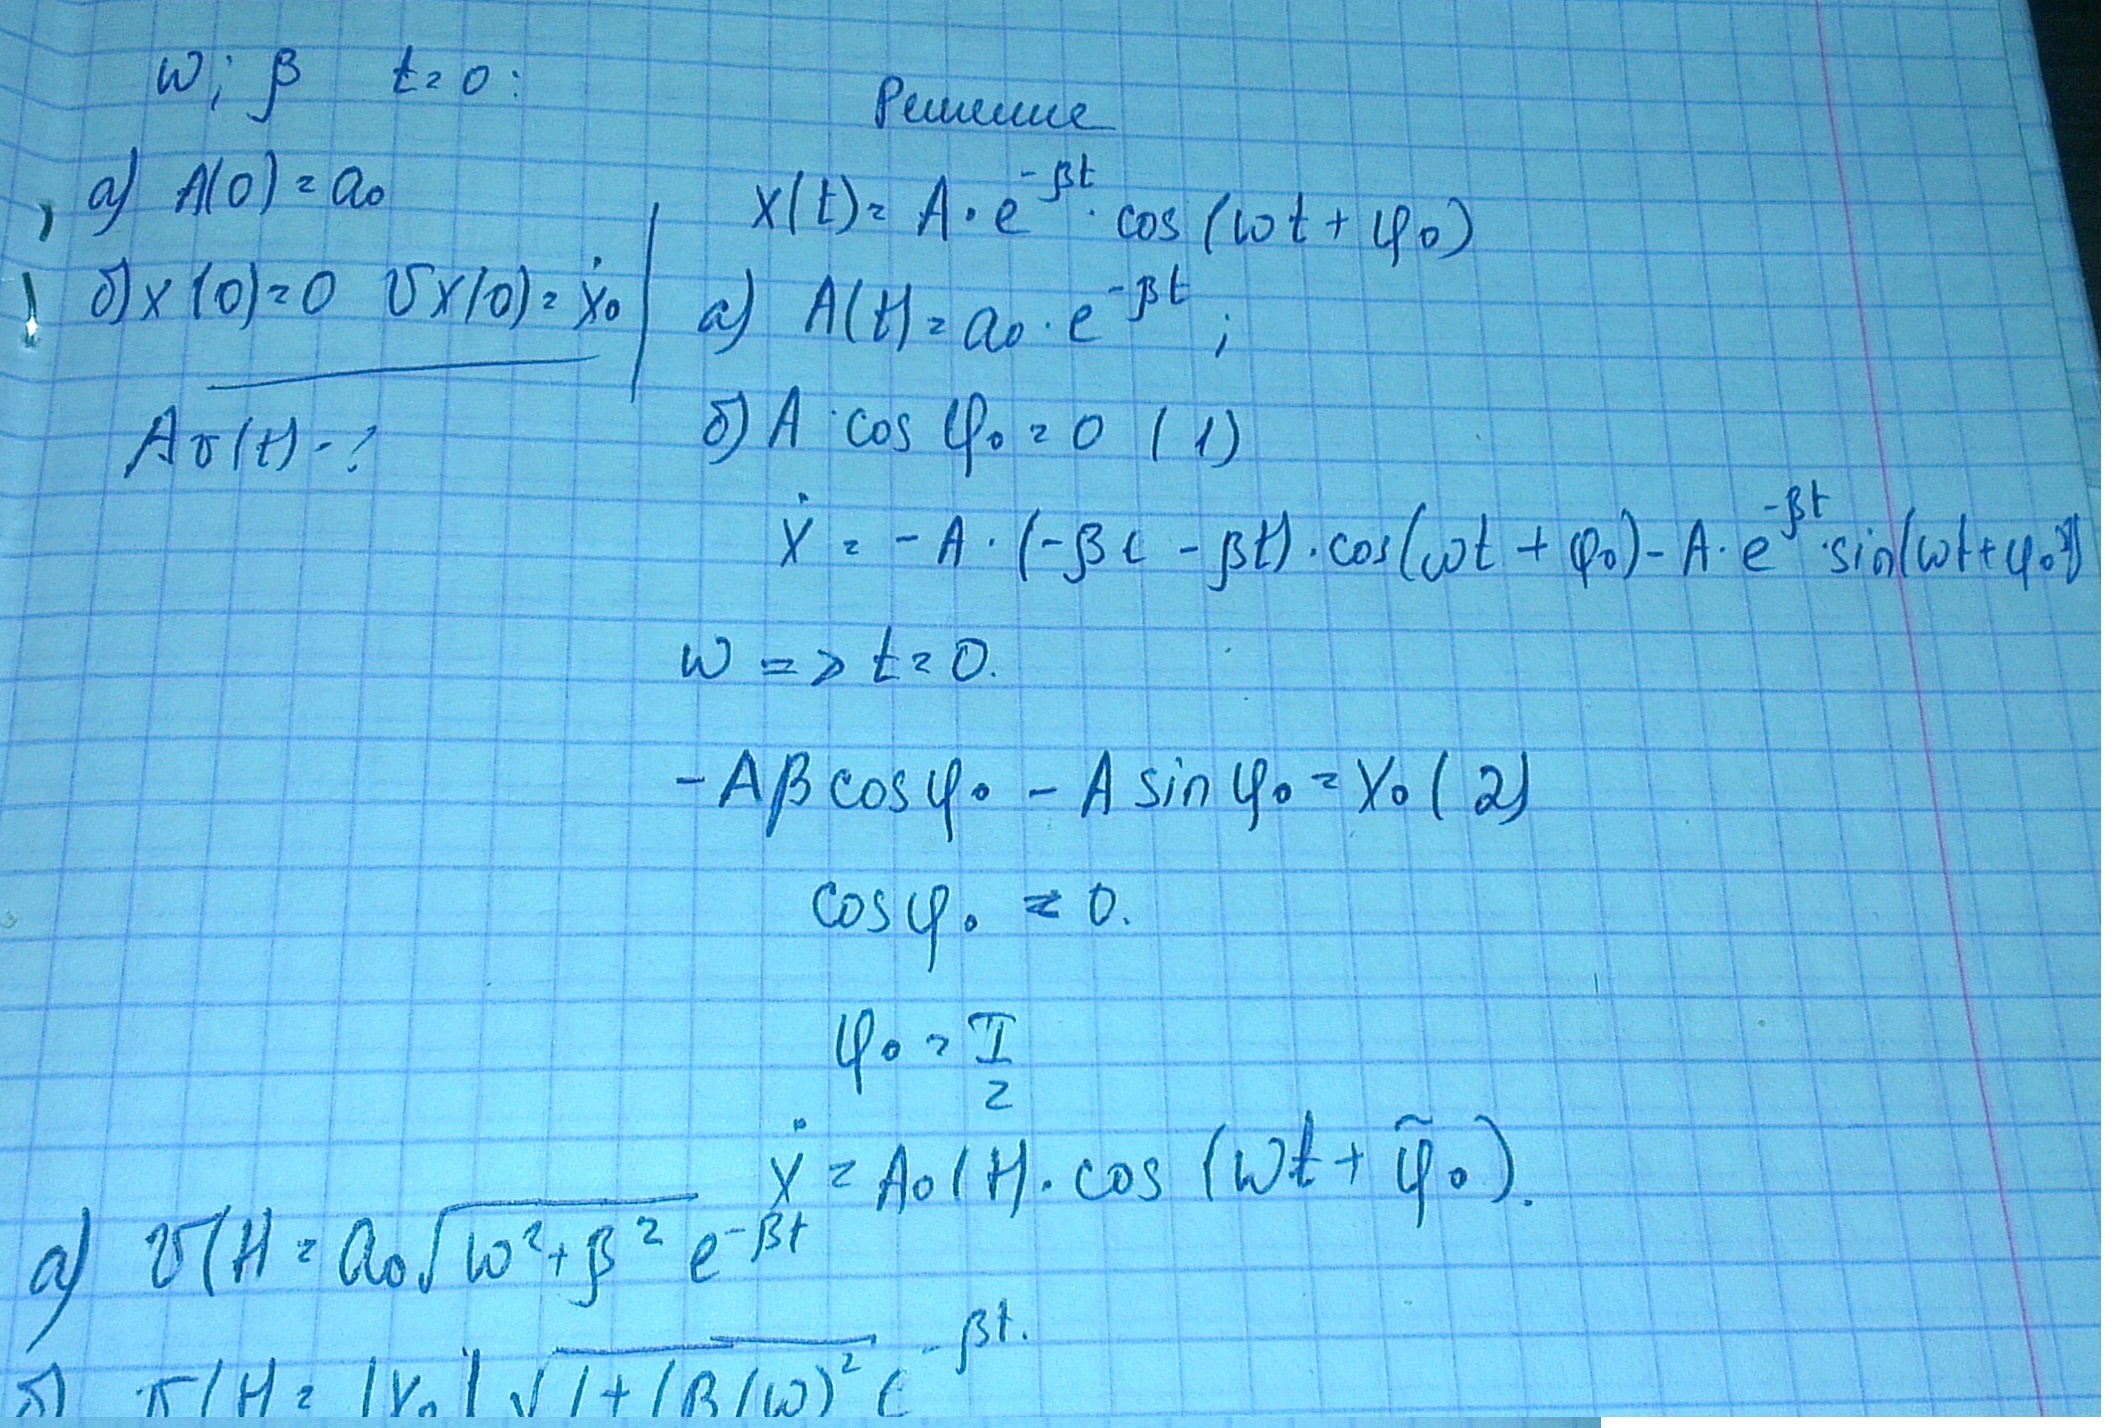 ω; β t=0:
а) A(0)=a₀
б) x(0)=0 υx(0)=ẋ₀
Aυ(t)-?
Решение
x(t)=A·e^{-βt}·cos(ωt+φ₀)
а) A(t)=a₀·e^{-βt};
б) A·cosφ₀=0 (1)
ẋ=-A·(-βe-βt)·cos(ωt+φ₀)-A·e^{-βt}·sin(ωt+φ₀)
ω => t=0.
-Aβcosφ₀-Asinφ₀=x₀(2)
cosφ₀=0.
φ₀=π/2
ẋ=A₀(t)·cos(ωt+φ̃₀).
а) υ(t)=a₀√(ω²+β²) e^{-βt}
б) υ(t)=|ẋ₀|√(1+(β/ω)²) e^{-βt}.